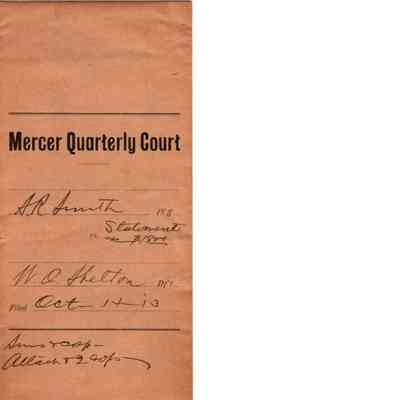 Mercer Quarterly Court
A R Smith
vs Statement
W. O. Shelton
Filed Oct 14 '13
Sums & cop-
Attach & 2 cops